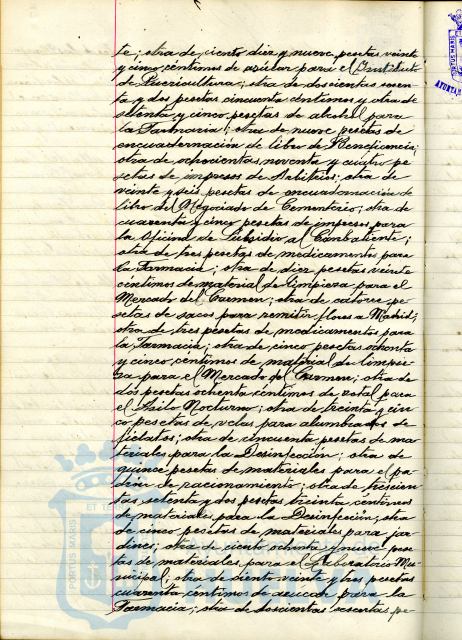 te; otra de ciento diez y nueve pesetas veinte
y cinco céntimos de azúcar para el Instituto
de Puericultura; otra de doscientas sesen-
ta y dos pesetas cincuenta céntimos y otra de
setenta y cinco pesetas de alcohol para
la Farmacia; otra de nueve pesetas de
encuadernación de libro de Beneficencia;
otra de ochocientas noventa y cuatro pe-
setas de impresos de Arbitrios; otra de
veinte y seis pesetas de encuadernación de
libro del Negociado de Cementerio; otra de
cuarenta y cinco pesetas de impresos para
la Oficina de Subsidio al Combatiente;
otra de tres pesetas de medicamentos para
la Farmacia; otra de diez pesetas veinte
céntimos de material de limpieza para el
Mercado del Carmen; otra de catorce pe-
setas de sacos para remitir flores a Madrid;
otra de tres pesetas de medicamentos para
la Farmacia; otra de cinco pesetas ochenta
y cinco céntimos de material de limpie-
za para el Mercado del Carmen; otra de
dos pesetas ochenta céntimos de para
el Asilo Nocturno; otra de treinta y cin-
co pesetas de velas para alumbrados de
; otra de cincuenta pesetas de ma-
teriales para la Desinfección; otra de
quince pesetas de materiales para el pa-
drón de racionamiento; otra de trescien-
tas setenta y dos pesetas treinta céntimos
de materiales para la Desinfección; otra
de cinco pesetas de materiales para jar-
dines; otra de ciento ochenta y nueve pese-
tas de materiales para el Laboratorio Mu-
nicipal; otra de ciento veinte y tres pesetas
cuarenta céntimos de azúcar para la
Farmacia; otra de doscientas sesenta pe-
PORTUS MARIS
ET TERRAE